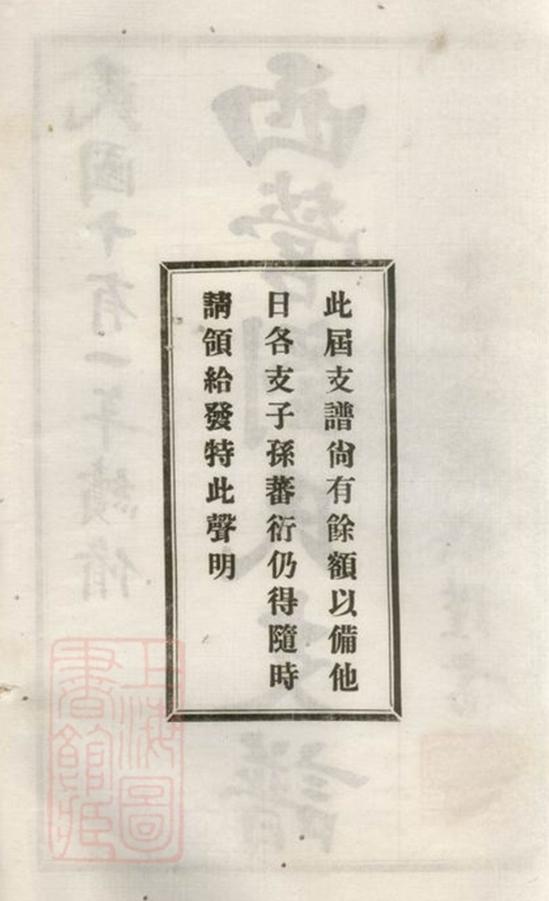 此屆支譜尙有餘額以備他
日各支子孫蕃衍仍得隨時
請領給發特此聲明
上海圖
書館藏